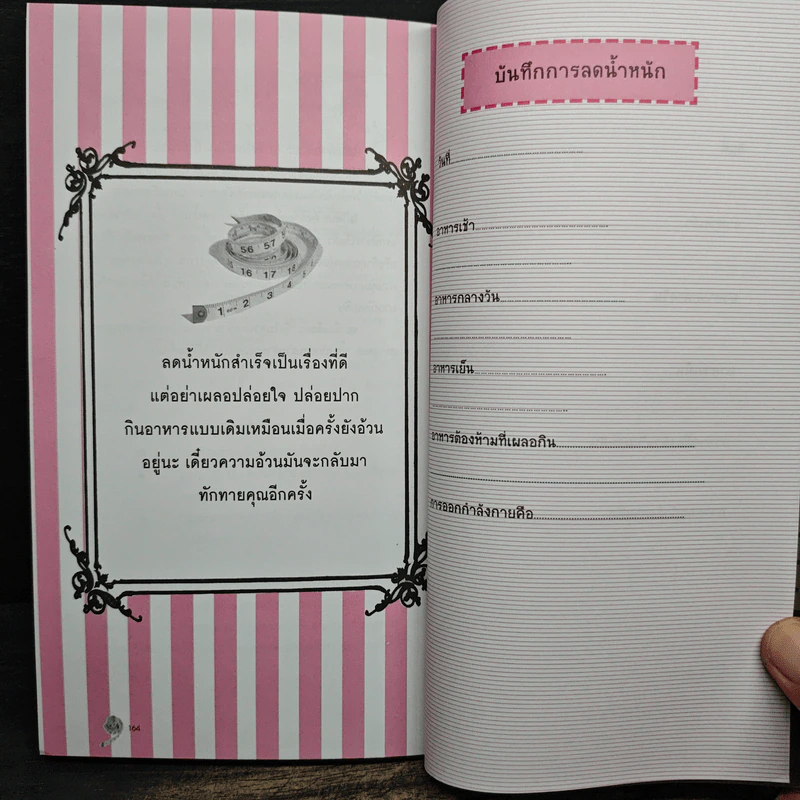 56 57
16 17 18
1 2 3 4 5
ลดน้ำหนักสำเร็จเป็นเรื่องที่ดี
แต่อย่าเผลอปล่อยใจ ปล่อยปาก
กินอาหารแบบเดิมเหมือนเมื่อครั้งยังอ้วน
อยู่นะ เดี๋ยวความอ้วนมันจะกลับมา
ทักทายคุณอีกครั้ง
164
บันทึกการลดน้ำหนัก
วันที่
อาหารเช้า
อาหารกลางวัน
อาหารเย็น
อาหารต้องห้ามที่เผลอกิน
การออกกำลังกายคือ